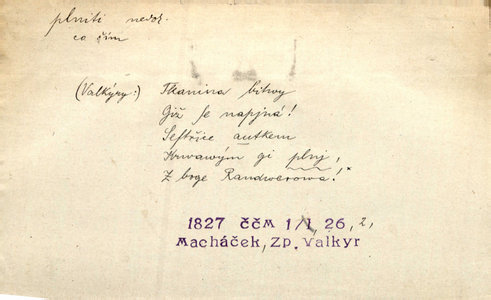 plniti nedok.
co čím
(Valkýry:) Tkanina bitwy
Giž se napjná!
Sestřice autkem
Krwawým gi plnj,
Z brge Randwerowa!*
1827 ČČM 1/1, 26, 2,
Macháček, Zp. Valkyr